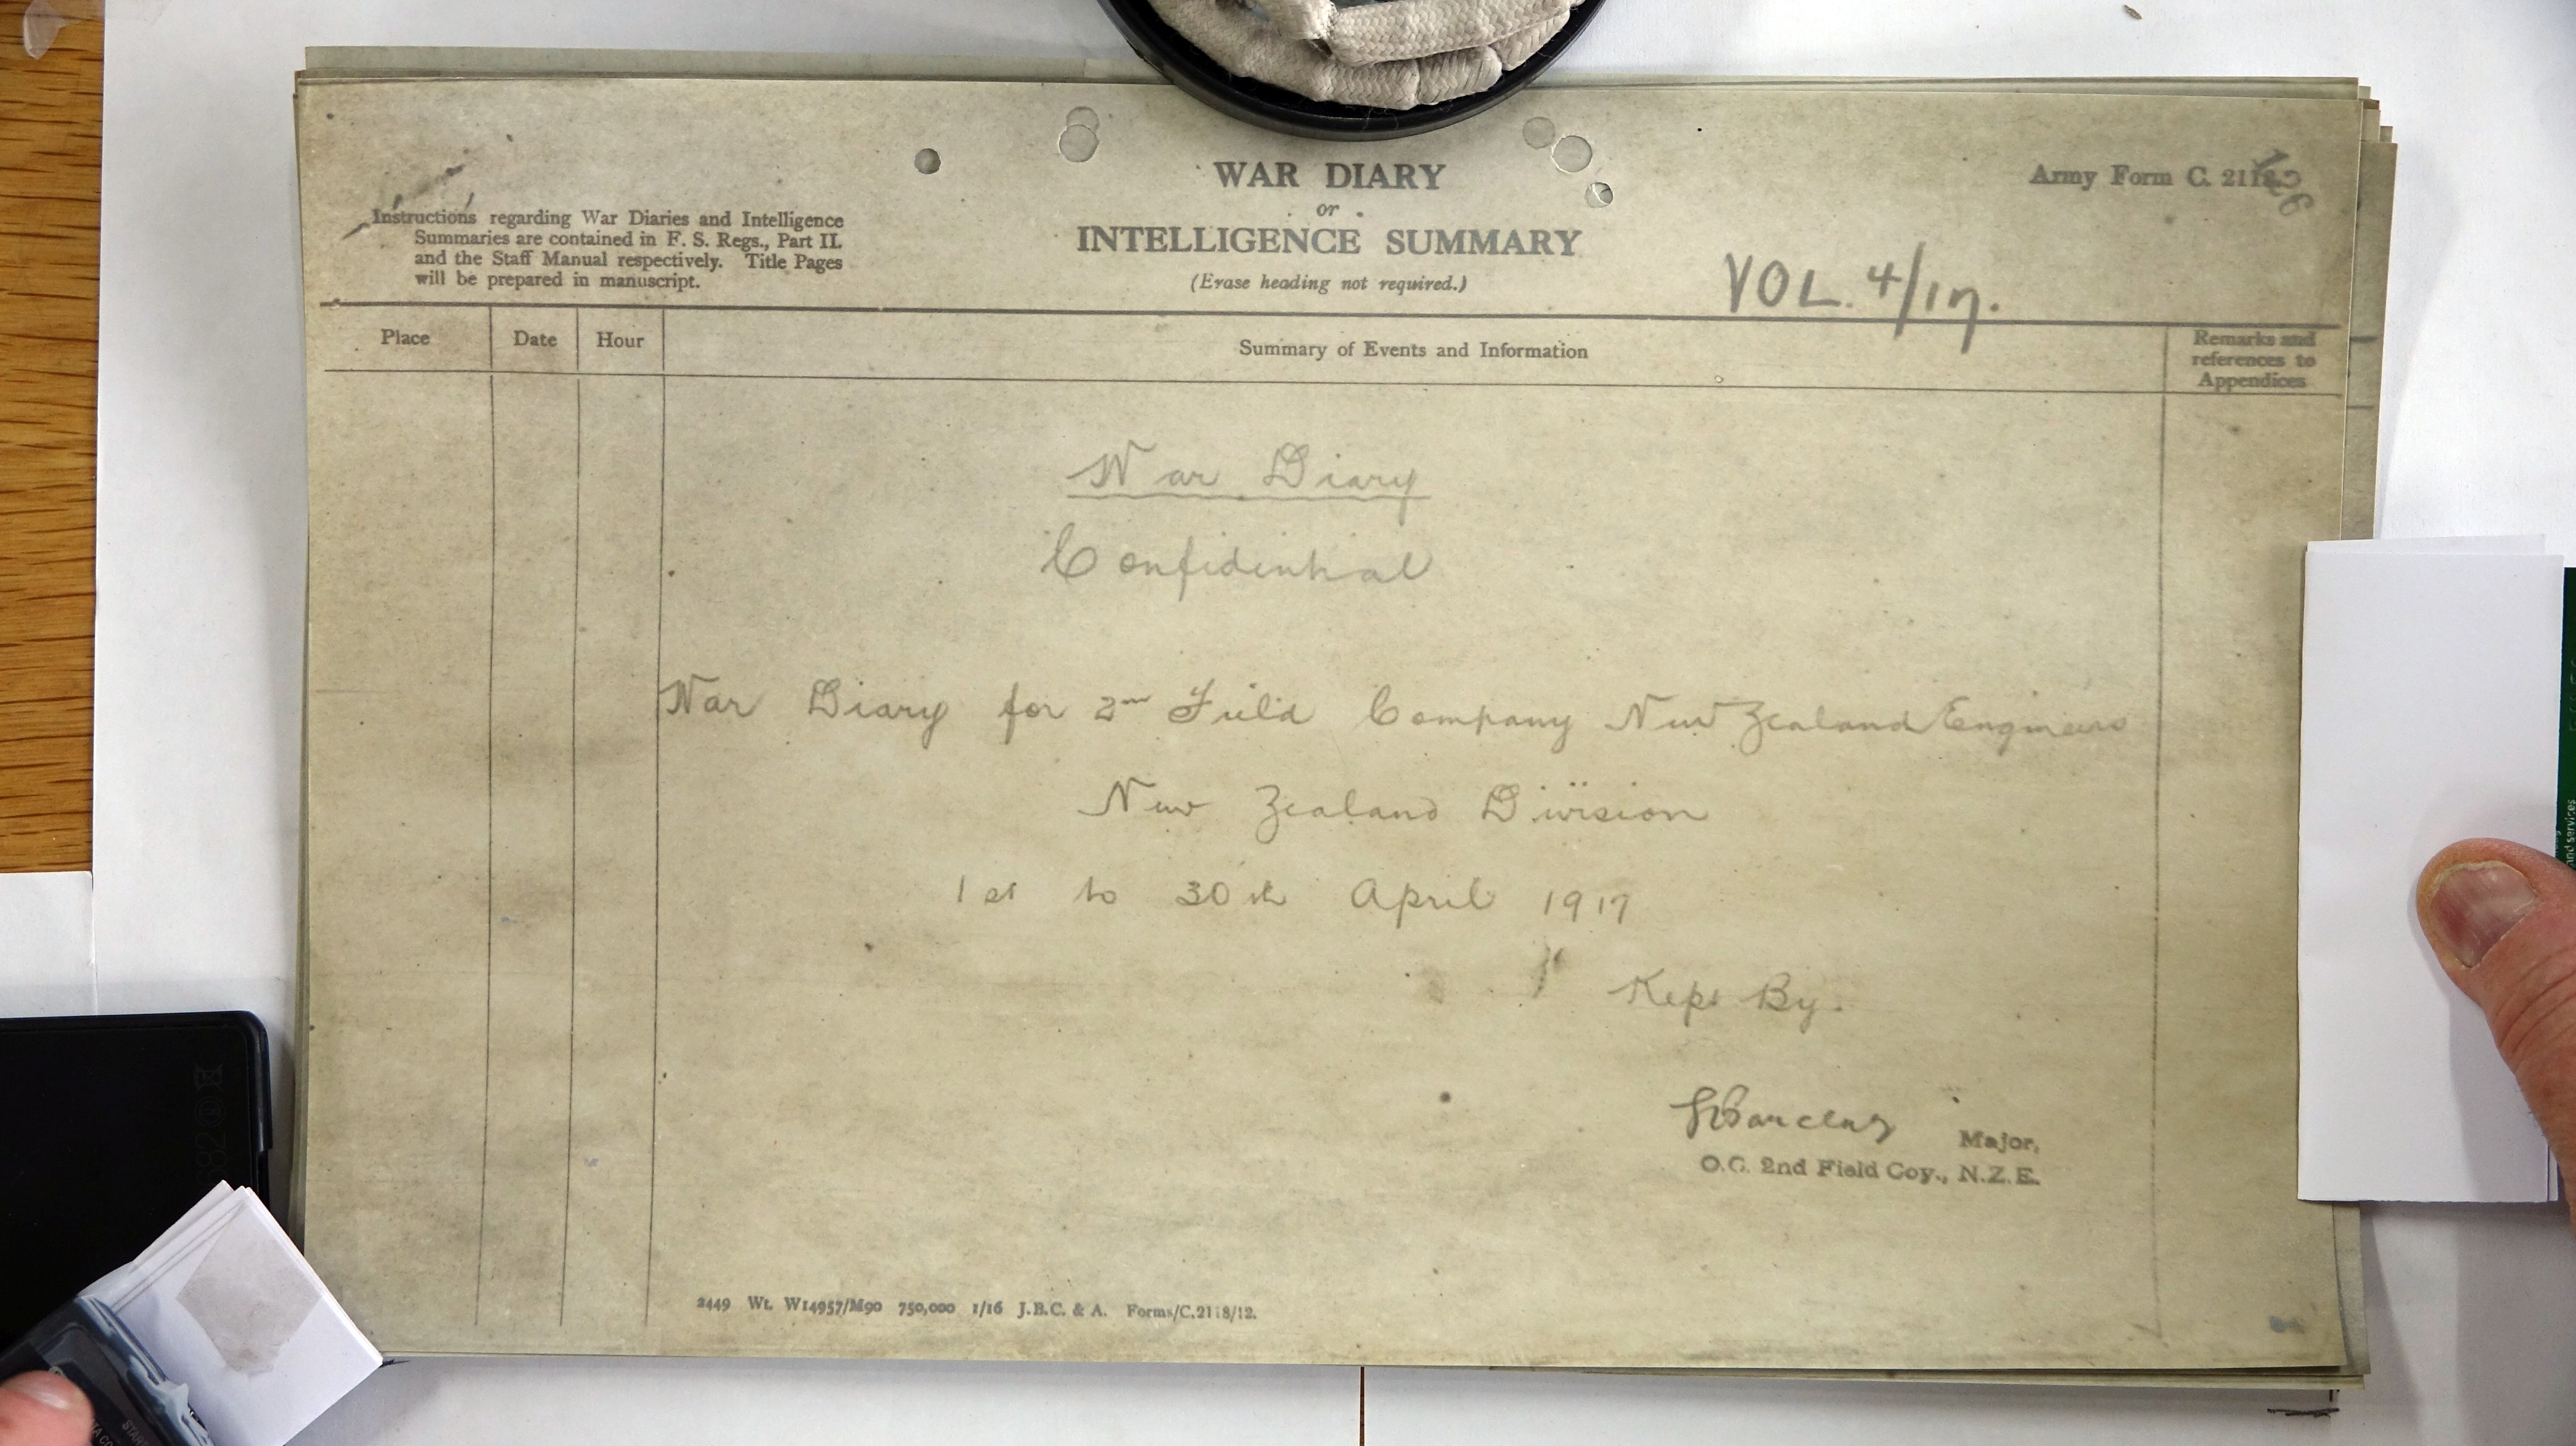 WAR DIARY
or
INTELLIGENCE SUMMARY
(Erase heading not required.)
Army Form C. 2118.
Instructions regarding War Diaries and Intelligence
Summaries are contained in F. S. Regs., Part II.
and the Staff Manual respectively. Title Pages
will be prepared in manuscript.
VOL. 4/17.
Place
Date
Hour
Summary of Events and Information
Remarks and
references to
Appendices
War Diary
Confidential
War Diary for 2nd Field Company New Zealand Engineers
New Zealand Division
1st to 30th April 1917
Kept By.
Barclay Major,
O.C. 2nd Field Coy., N.Z.E.
2449 Wt. W14957/M90 750,000 1/16 J.B.C. & A. Forms/C.2118/12.